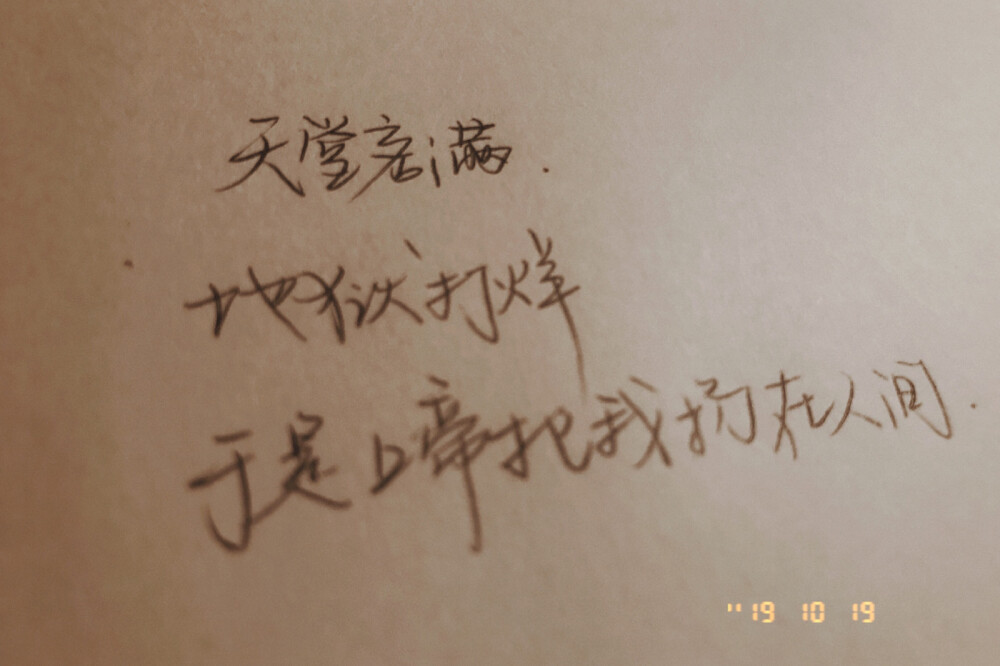 天堂客满.
地狱打烊
于是上帝把我扔在人间.
"19 10 19